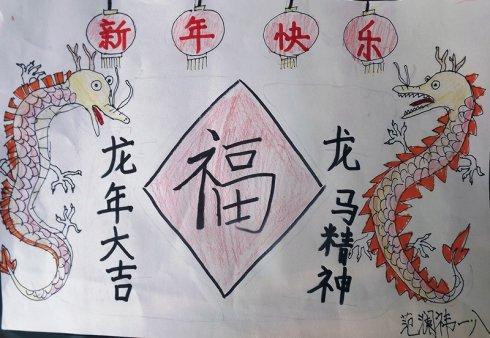 新年快乐
福
龙年大吉
龙马精神
范澜 一八